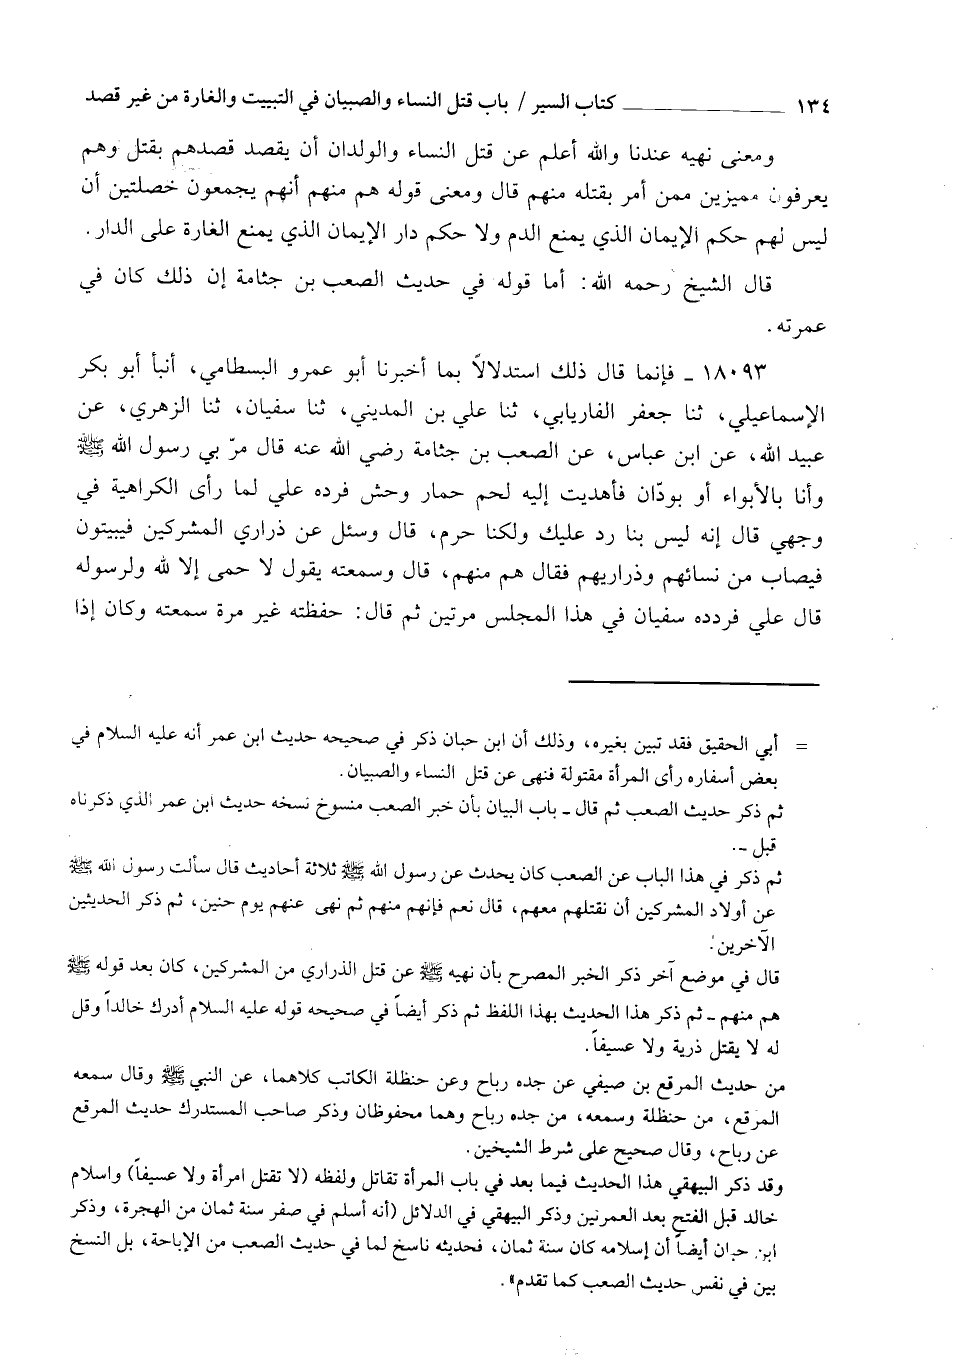 ١٣٤ ــــــــــــــ كتاب السير / باب قتل النساء والصبيان في التبييت والغارة من غير قصد
ومعنى نهيه عندنا والله أعلم عن قتل النساء والولدان أن يقصد قصدهم بقتل وهم
يعرفون مميزين ممن أمر بقتله منهم قال ومعنى قوله هم منهم أنهم يجمعون خصلتين أن
ليس لهم حكم الإيمان الذي يمنع الدم ولا حكم دار الإيمان الذي يمنع الغارة على الدار.
قال الشيخ رحمه الله: أما قوله في حديث الصعب بن جثامة إن ذلك كان في
عمرته.
١٨٠٩٣ ـ فإنما قال ذلك استدلالاً بما أخبرنا أبو عمرو البسطامي، أنبأ أبو بكر
الإسماعيلي، ثنا جعفر الفاريابي، ثنا علي بن المديني، ثنا سفيان، ثنا الزهري، عن
عبيد الله، عن ابن عباس، عن الصعب بن جثامة رضي الله عنه قال مرّ بي رسول الله ﷺ
وأنا بالأبواء أو بودّان فأهديت إليه لحم حمار وحش فرده علي لما رأى الكراهية في
وجهي قال إنه ليس بنا رد عليك ولكنا حرم، قال وسئل عن ذراري المشركين فيبيتون
فيصاب من نسائهم وذراريهم فقال هم منهم، قال وسمعته يقول لا حمى إلا لله ولرسوله
قال علي فردده سفيان في هذا المجلس مرتين ثم قال: حفظته غير مرة سمعته وكان إذا
= أبي الحقيق فقد تبين بغيره، وذلك أن ابن حبان ذكر في صحيحه حديث ابن عمر أنه عليه السلام في
بعض أسفاره رأى المرأة مقتولة فنهى عن قتل النساء والصبيان.
ثم ذكر حديث الصعب ثم قال ـ باب البيان بأن خبر الصعب منسوخ نسخه حديث ابن عمر الذي ذكرناه
قبل ـ.
ثم ذكر في هذا الباب عن الصعب كان يحدث عن رسول الله ﷺ ثلاثة أحاديث قال سألت رسول الله ﷺ
عن أولاد المشركين أن نقتلهم معهم، قال نعم فإنهم منهم ثم نهى عنهم يوم حنين، ثم ذكر الحديثين
الآخرين.
قال في موضع آخر ذكر الخبر المصرح بأن نهيه ﷺ عن قتل الذراري من المشركين، كان بعد قوله ﷺ
هم منهم ـ ثم ذكر هذا الحديث بهذا اللفظ ثم ذكر أيضاً في صحيحه قوله عليه السلام أدرك خالداً وقل
له لا يقتل ذرية ولا عسيفاً.
من حديث المرقع بن صيفي عن جده رباح وعن حنظلة الكاتب كلاهما، عن النبي ﷺ وقال سمعه
المرقع، من حنظلة وسمعه، من جده رباح وهما محفوظان وذكر صاحب المستدرك حديث المرقع
عن رباح، وقال صحيح على شرط الشيخين.
وقد ذكر البيهقي هذا الحديث فيما بعد في باب المرأة تقاتل ولفظه (لا تقتل امرأة ولا عسيفاً) واسلام
خالد قبل الفتح بعد العمرتين وذكر البيهقي في الدلائل (أنه أسلم في صفر سنة ثمان من الهجرة، وذكر
ابن حبان أيضاً أن إسلامه كان سنة ثمان، فحديثه ناسخ لما في حديث الصعب من الإباحة، بل النسخ
بين في نفس حديث الصعب كما تقدم».